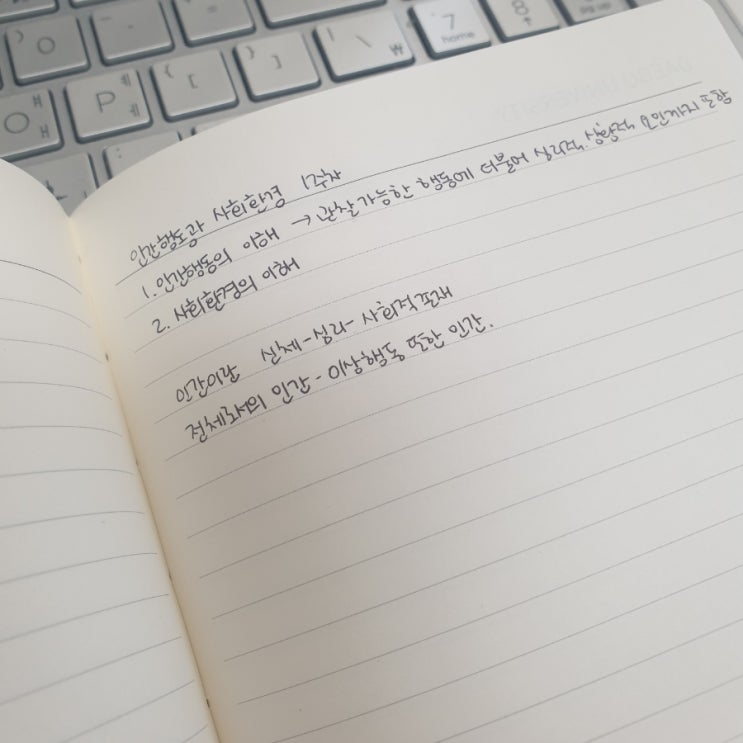 7
home
8
pg up
P
ㅔ
ㅖ
O
ㅐ
ㅒ
₩
DAEGU UNIVERSITY
인간행동과 사회환경 1주차
1. 인간행동의 이해 → 관찰가능한 행동에 더불어 심리적, 상황적 요인까지 포함
2. 사회환경의 이해
인간이란 신체-심리-사회적존재
전체로서의 인간 - 이상행동 또한 인간.